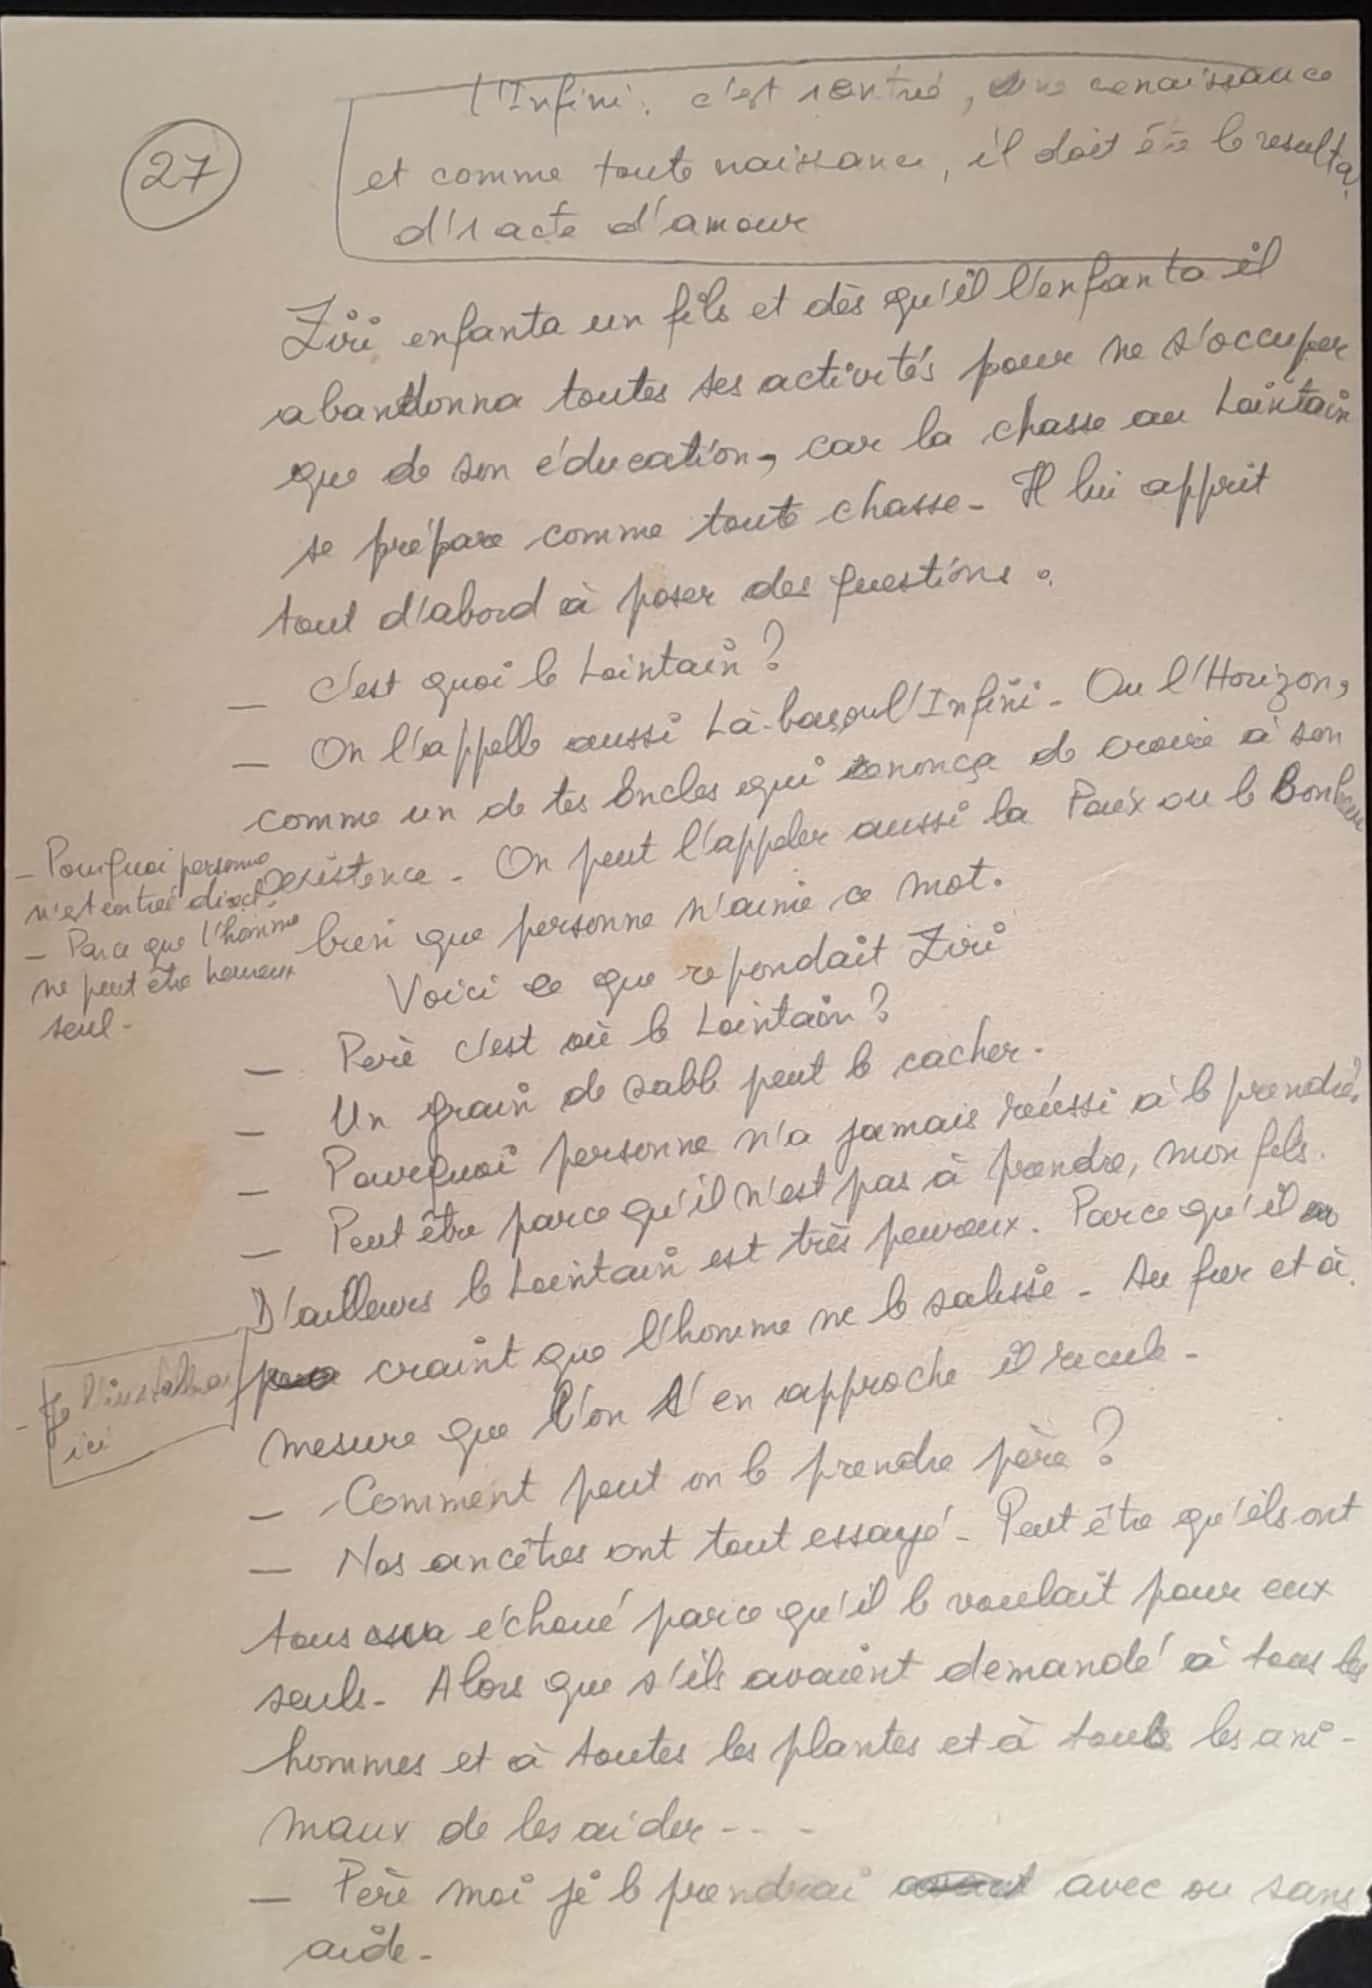 27
l'Infini. c'est 1 entrée, une renaissance
et comme toute naissance, il doit être le resulta
d'1 acte d'amour
Ziri enfanta un fils et dès qu'il l'enfanta il
abandonna toutes ses activités pour ne s'occuper
que de son éducation, car la chasse au Lointain
se prépare comme toute chasse - Il lui apprit
tout d'abord à poser des questions.
— C'est quoi le Lointain ?
— On l'appelle aussi Là-bas, ou l'Infini - Ou l'Horizon,
comme un de tes Oncles qui renonça de croire à son
existence - On peut l'appeler aussi la Paix ou le Bonheur
bien que personne n'aime ce mot.
Voici ce que repondait Ziri
- Pourquoi personne
n'est entré direct.
- Parce que l'homme
ne peut être heureux
seul -
— Père c'est où le Lointain ?
— Un grain de sable peut le cacher -
— Pourquoi personne n'a jamais réussi à le prendre ?
— Peut être parce qu'il n'est pas à prendre, mon fils.
D'ailleurs le Lointain est très peureux. Parce qu'il
craint que l'homme ne le salisse - Au fur et à
mesure que l'on s'en approche il recule -
- Je l'installerai
ici
— Comment peut on le prendre père ?
— Nos ancêtres ont tout essayé - Peut être qu'ils ont
tous échoué parce qu'il le voulait pour eux
seuls - Alors que s'ils avaient demandé à tous les
hommes et à toutes les plantes et à tous les ani-
maux de les aider - - -
— Père moi je le prendrai avec ou sans
aide -